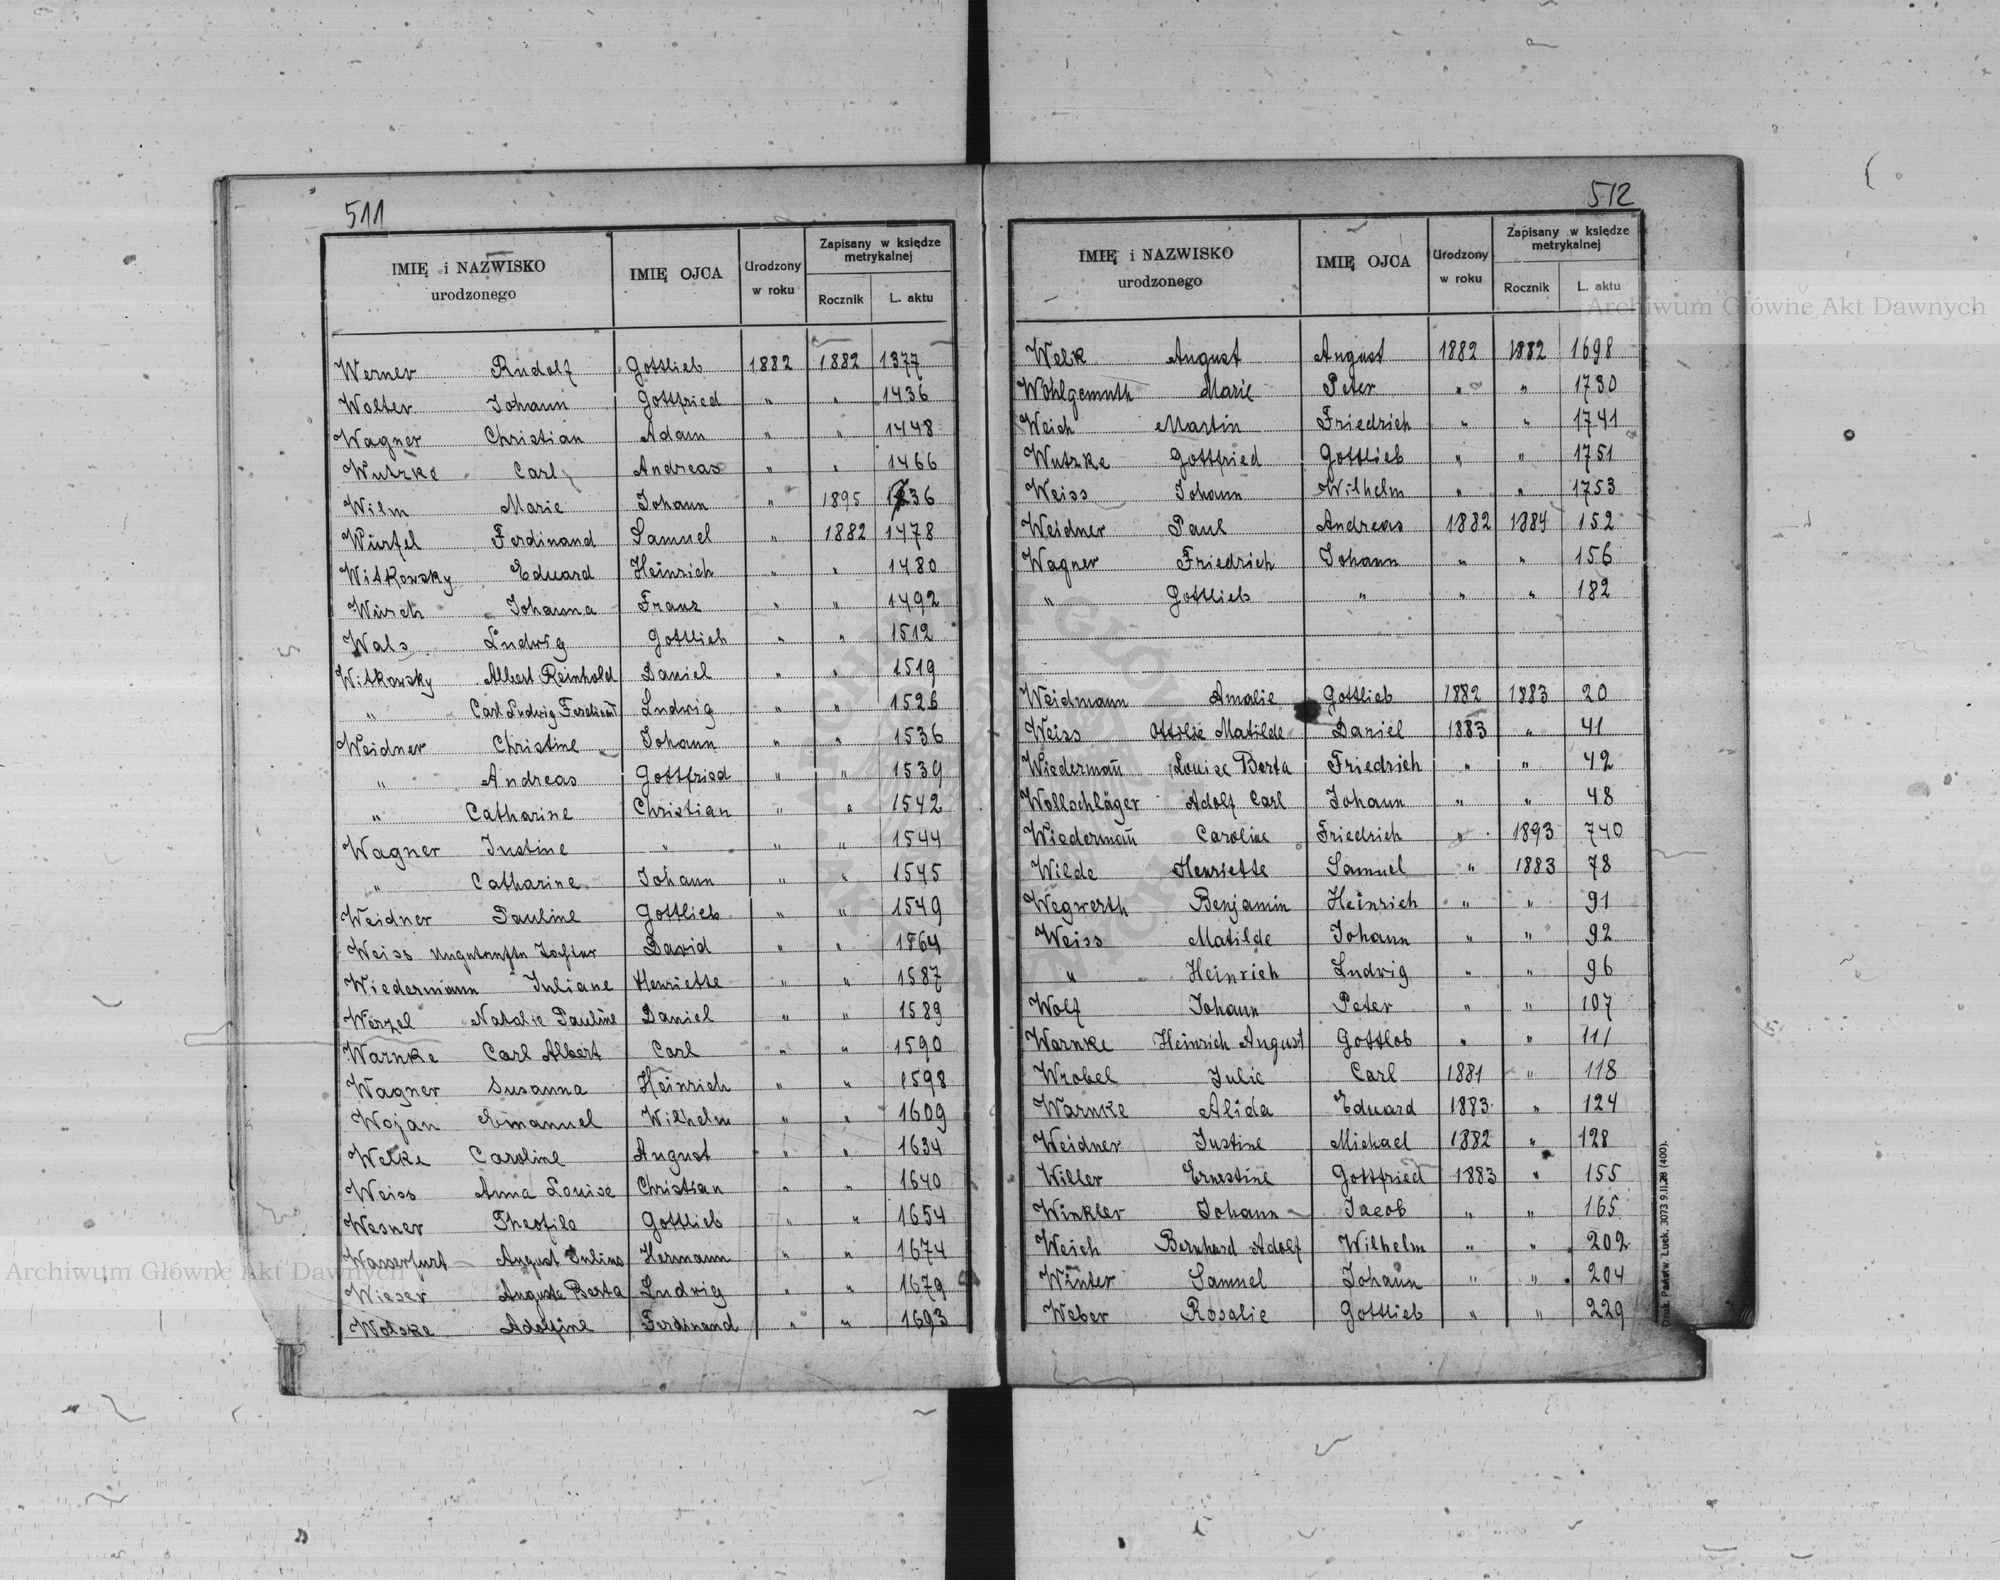 511
IMIĘ i NAZWISKO urodzonego IMIĘ OJCA Urodzony w roku Zapisany w księdze metrykalnej Rocznik L. aktu
Werner Rudolf Gottlieb 1882 1882 1377
Wolter Johann Gottfried " " 1436
Wagner Christian Adam " " 1448
Wutzke Carl Andreas " " 1466
Wilm Marie Johann " 1895 1236
Würfel Ferdinand Samuel " 1882 1478
Witkowsky Eduard Heinrich " " 1480
Würch Johanna Franz " " 1492
Wals Ludwig Gottlieb " " 1512
Witkowsky Albert Reinhold Daniel " " 1519
" Carl Ludwig Ferdinand Ludwig " " 1526
Weidner Christine Johann " " 1536
" Andreas Gottfried " " 1539
" Catharine Christian " " 1542
Wagner Justine " " " 1544
" Catharine Johann " " 1545
Weidner Pauline Gottlieb " " 1549
Weiss ungetaufte Tochter David " " 1564
Wiedermann Juliane Henriette " " 1587
Werzel Natalie Pauline Daniel " " 1589
Warnke Carl Albert Carl " " 1590
Wagner Susanna Heinrich " " 1598
Wojan Emanuel Wilhelm " " 1609
Welke Caroline August " " 1634
Weiss Anna Louise Christian " " 1640
Wesner Theofila Gottlieb " " 1654
Wasserfurt August Julius Hermann " " 1674
Wieser Auguste Berta Ludwig " " 1679
Wolske Adolfine Ferdinand " " 1693
512
IMIĘ i NAZWISKO urodzonego IMIĘ OJCA Urodzony w roku Zapisany w księdze metrykalnej Rocznik L. aktu
Welk August August 1882 1882 1698
Wohlgemuth Marie Peter " " 1730
Weich Martin Friedrich " " 1741
Wutzke Gottfried Gottlieb " " 1751
Weiss Johann Wilhelm " " 1753
Weidner Paul Andreas 1882 1884 152
Wagner Friedrich Johann " " 156
" Gottlieb " " " 182
Weidmann Amalie Gottlieb 1882 1883 20
Weiss Ottilie Matilde Daniel 1883 " 41
Wiedermañ Louise Berta Friedrich " " 42
Wollschläger Adolf Carl Johann " " 48
Wiedermañ Caroline Friedrich " 1893 740
Wilde Henriette Samuel " 1883 78
Wegwerth Benjamin Heinrich " " 91
Weiss Matilde Johann " " 92
" Heinrich Ludwig " " 96
Wolf Johann Peter " " 107
Warnke Heinrich August Gottlob " " 111
Wrobel Julie Carl 1881 " 118
Warnke Alida Eduard 1883 " 124
Weidner Justine Michael 1882 " 128
Willer Ernestine Gottfried 1883 " 155
Winkler Johann Jacob " " 165
Weich Bernhard Adolf Wilhelm " " 202
Winter Samuel Johann " " 204
Weber Rosalie Gottlieb " " 229
Druk. Państw. Łuck. 3073 9.II.28 (400).
Archiwum Główne Akt Dawnych
Archiwum Główne Akt Dawnych